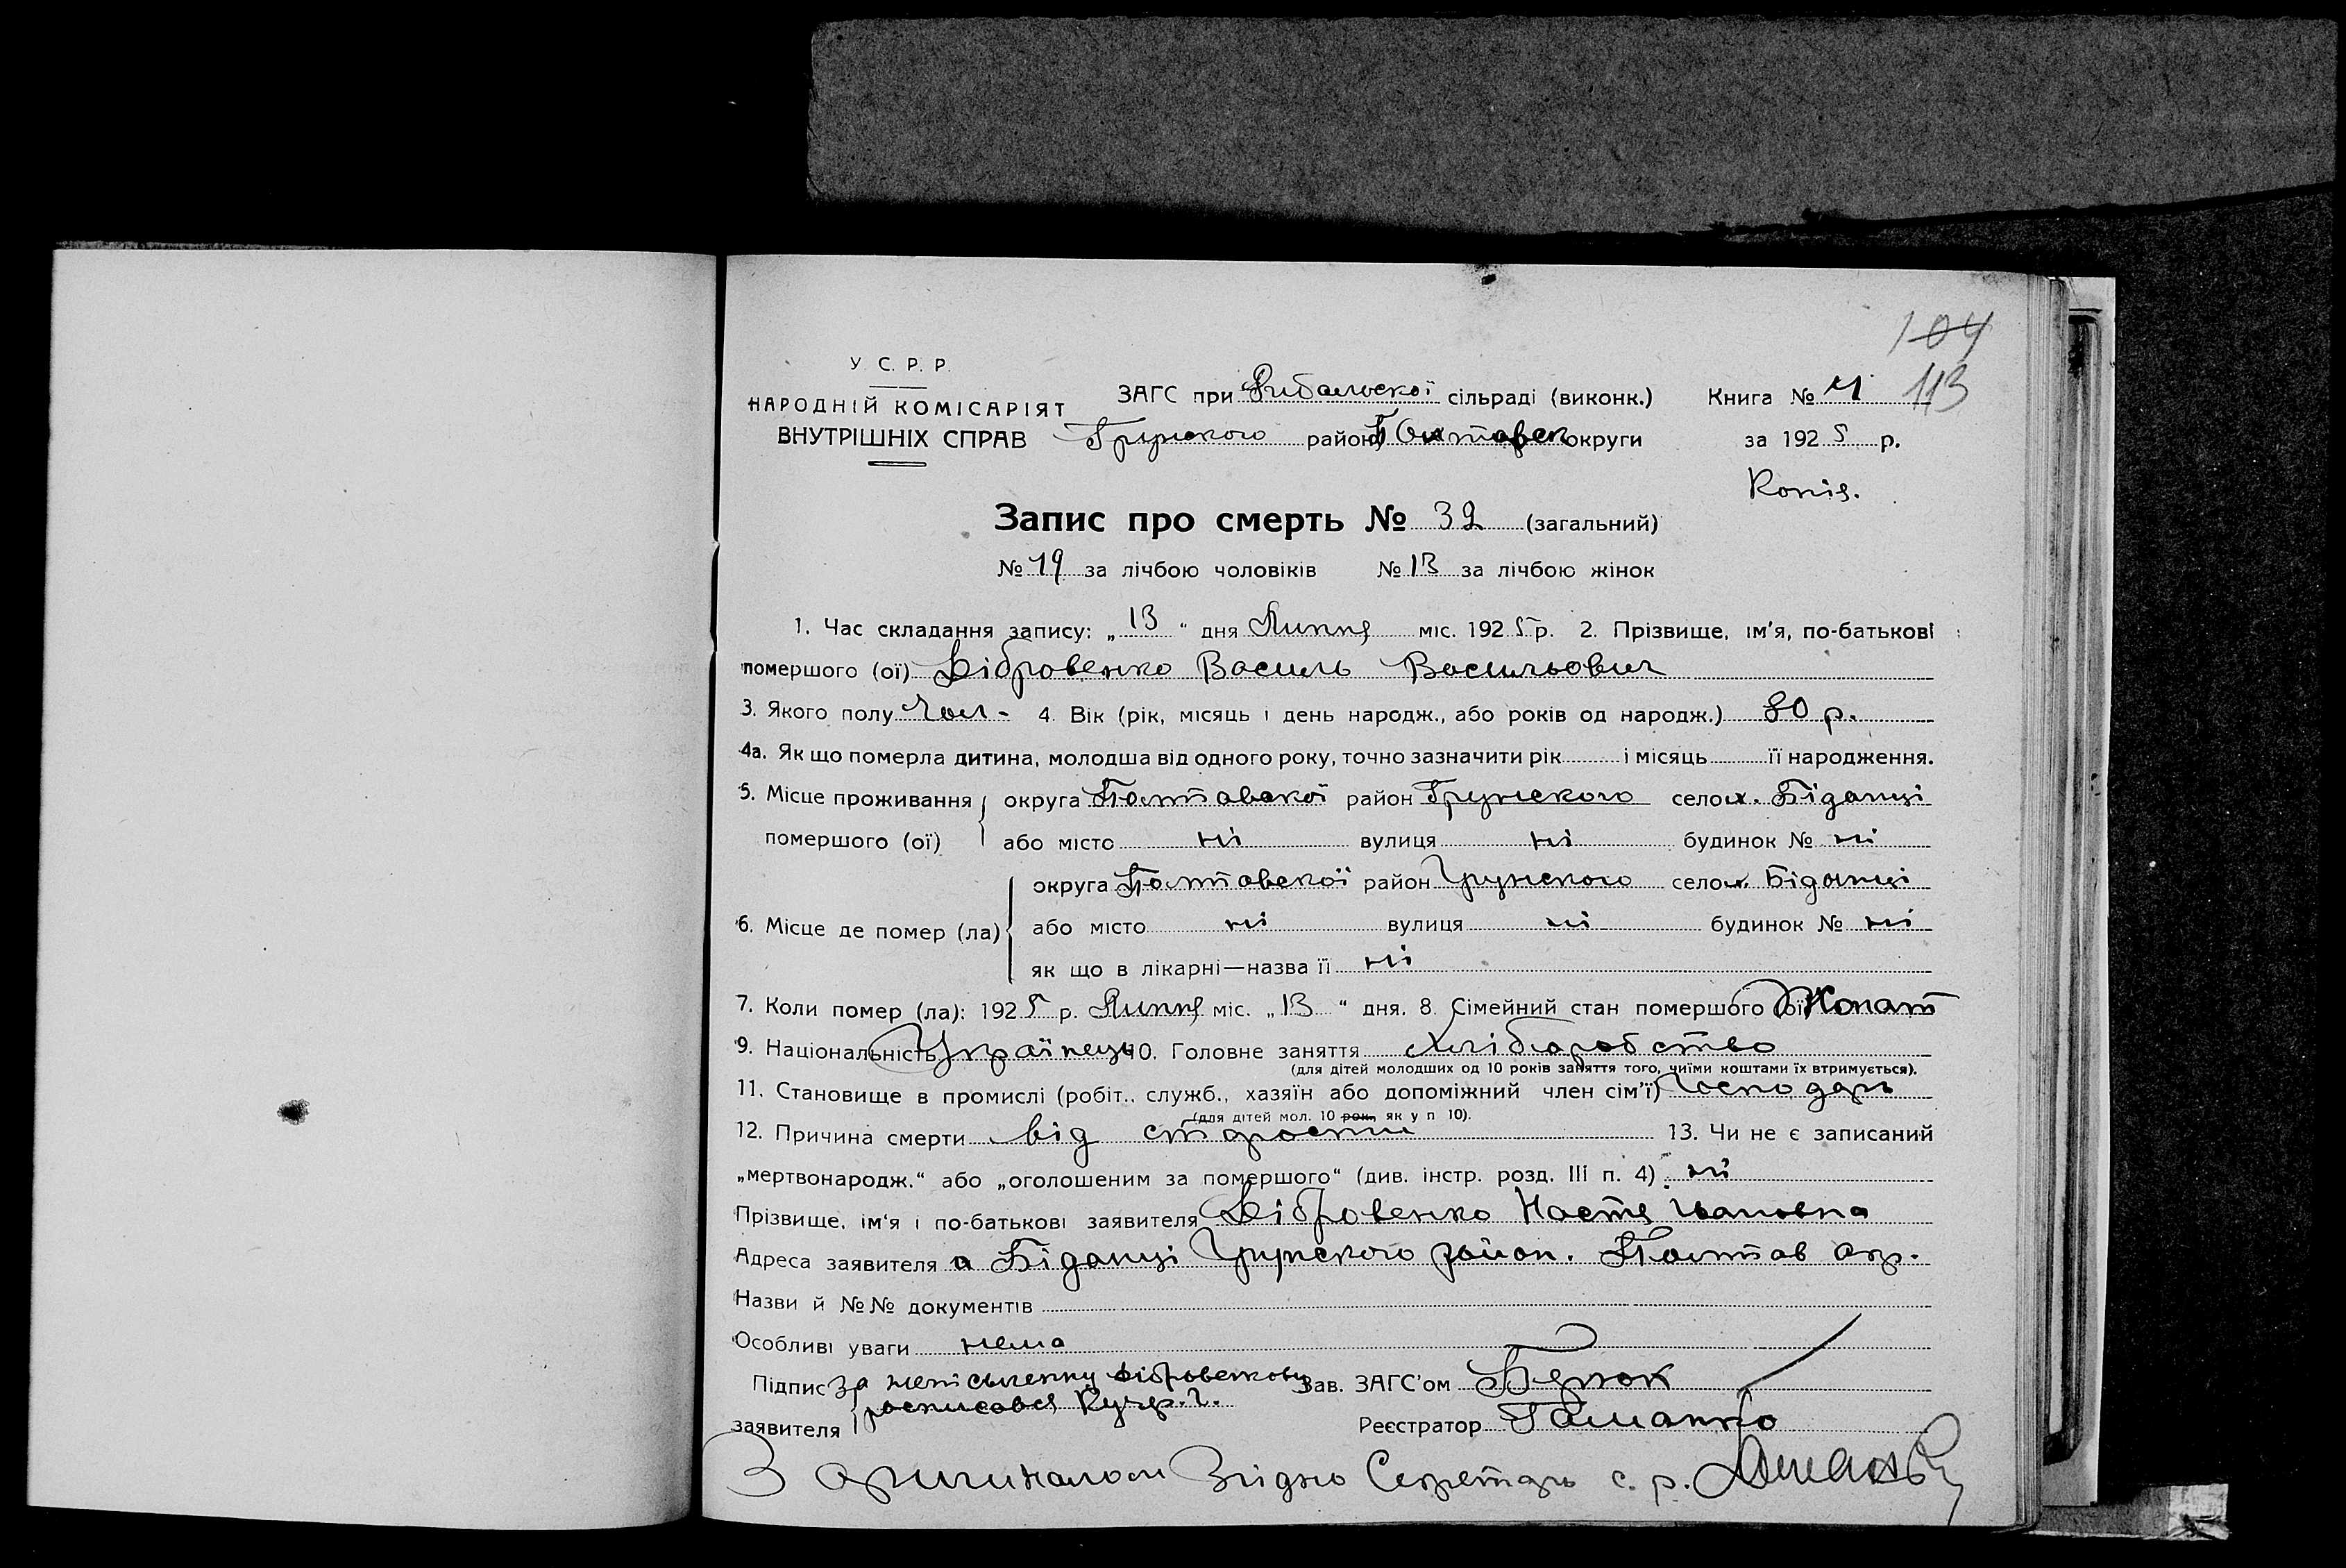 104
113
У С. Р. Р.
НАРОДНІЙ КОМІСАРІЯТ
ВНУТРІШНІХ СПРАВ
ЗАГС при Рибальскої сільраді (виконк.) Книга №
Грунского району Полтавськ округи за 1925 р.
Копія.
Запис про смерть № 32 (загальний)
№ 19 за лічбою чоловіків № 13 за лічбою жінок
1. Час складання запису: „13“ дня Липня міс. 1925 р. 2. Прізвище, ім'я, по-батькові
помершого (ої) Дібровенко Василь Васильович
3. Якого полу чол- 4. Вік (рік, місяць і день народж., або років од народж.) 80 р.
4а. Як що померла дитина, молодша від одного року, точно зазначити рік і місяць її народження.
5. Місце проживання округа Полтавскої район Грунского село х. Біданці
помершого (ої) або місто ні вулиця ні будинок № ні
округа Полтавскої район Грунского село х. Біданці
6. Місце де помер (ла) або місто ні вулиця ні будинок № ні
як що в лікарні—назва її ні
7. Коли помер (ла): 1925 р. Липня міс. „13“ дня. 8. Сімейний стан помершого (ої) Жонат
9. Національність Українець 10. Головне заняття хліборобство
(для дітей молодших од 10 років заняття того, чиїми коштами їх втримується).
11. Становище в промислі (робіт., служб., хазяїн або допоміжний член сім'ї) Господарь
(для дітей мол. 10 рок, як у п 10).
12. Причина смерти від старости 13. Чи не є записаний
„мертвонародж.“ або „оголошеним за помершого“ (див. інстр. розд. III п. 4) ні
Прізвище, ім'я і по-батькові заявителя Дібровенко Настя Ивановна
Адреса заявителя х Біданці Грунского район. Полтав окр.
Назви й №№ документів
Особливі уваги нема
Підпис За неписьменну Дібровенкову Зав. ЗАГС'ом
росписався
заявителя Реєстратор Гаманко
З оригиналом Згідно Секретарь с. р.